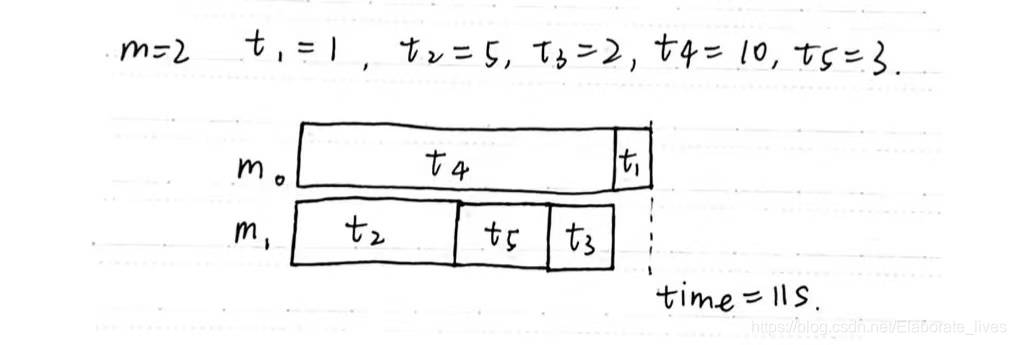 m=2 t₁=1, t₂=5, t₃=2, t4=10, t5=3.
m₀ t4 t₁
m₁ t₂ t5 t3
time=11s.
https://blog.csdn.net/Elaborate_lives